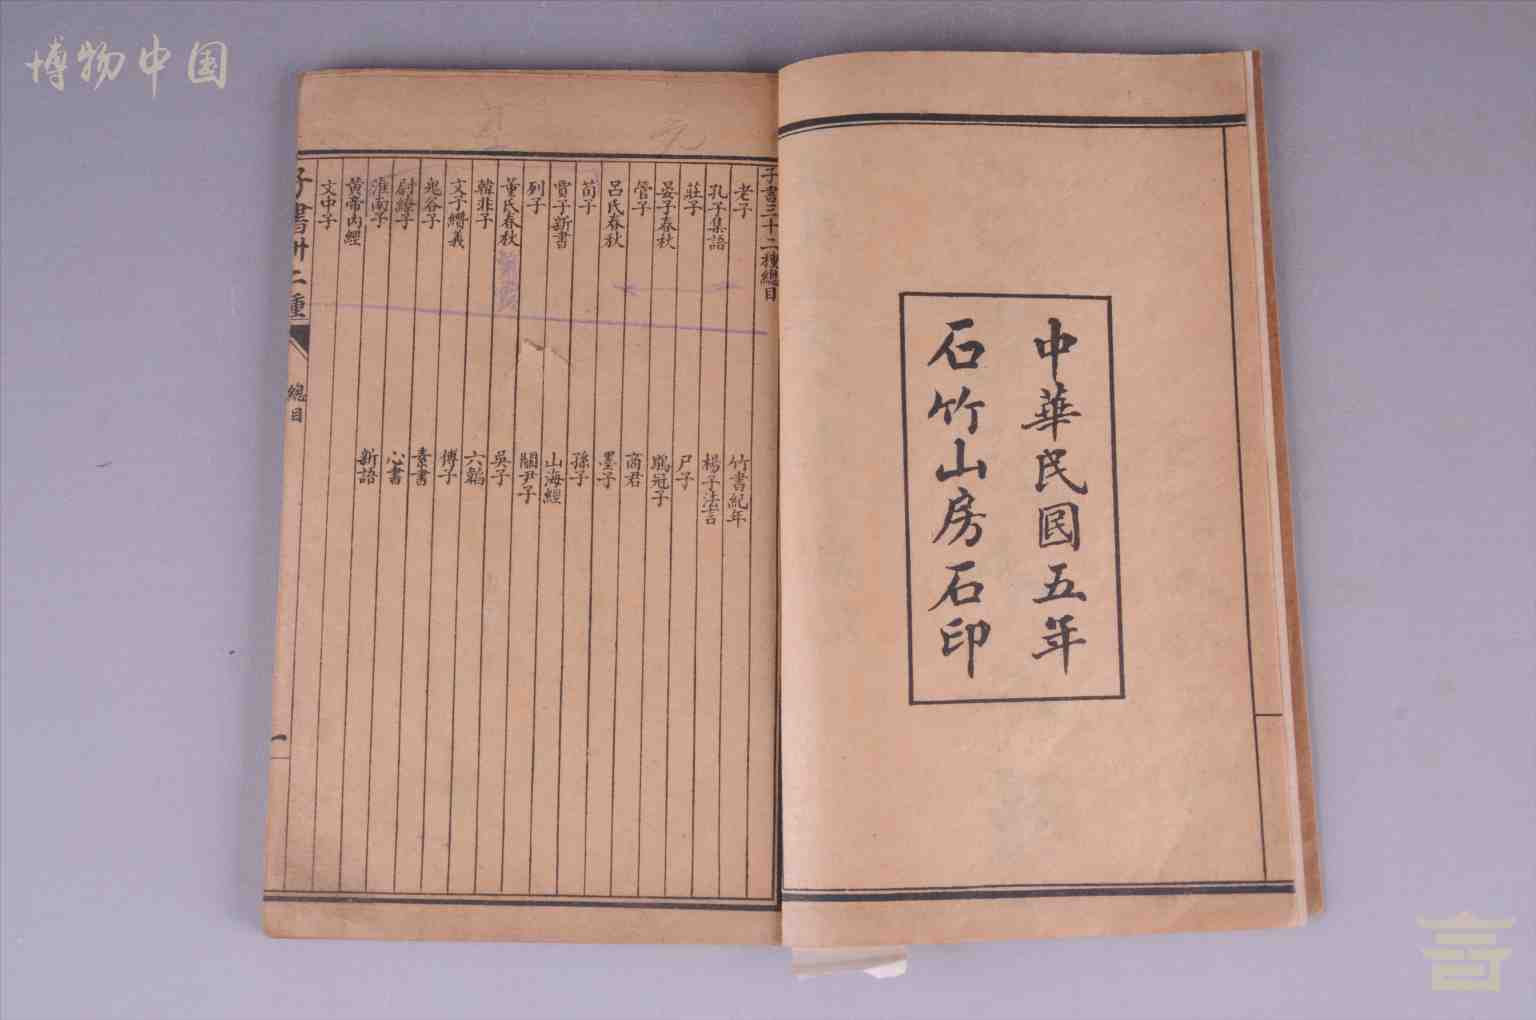 博物中国
中華民国五年
石竹山房石印
子書三十二種總目
老子
竹書紀年
孔子集語
楊子法言
莊子
尸子
晏子春秋
鶡冠子
管子
商君
呂氏春秋
墨子
荀子
孫子
賈子新書
山海經
列子
關尹子
董氏春秋
吳子
韓非子
六韜
文子纘義
傅子
鬼谷子
素書
尉繚子
心書
淮南子
新語
黃帝內經
文中子
子書卅二種
總目
一